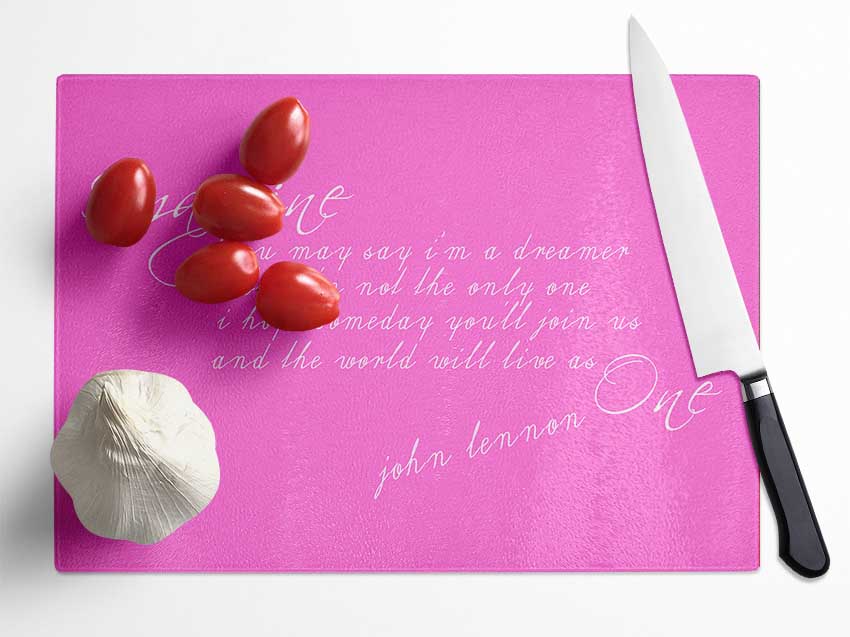 may say i'm a dreamer
not the only one
i someday you'll join us
and the world will live as One
john lennon